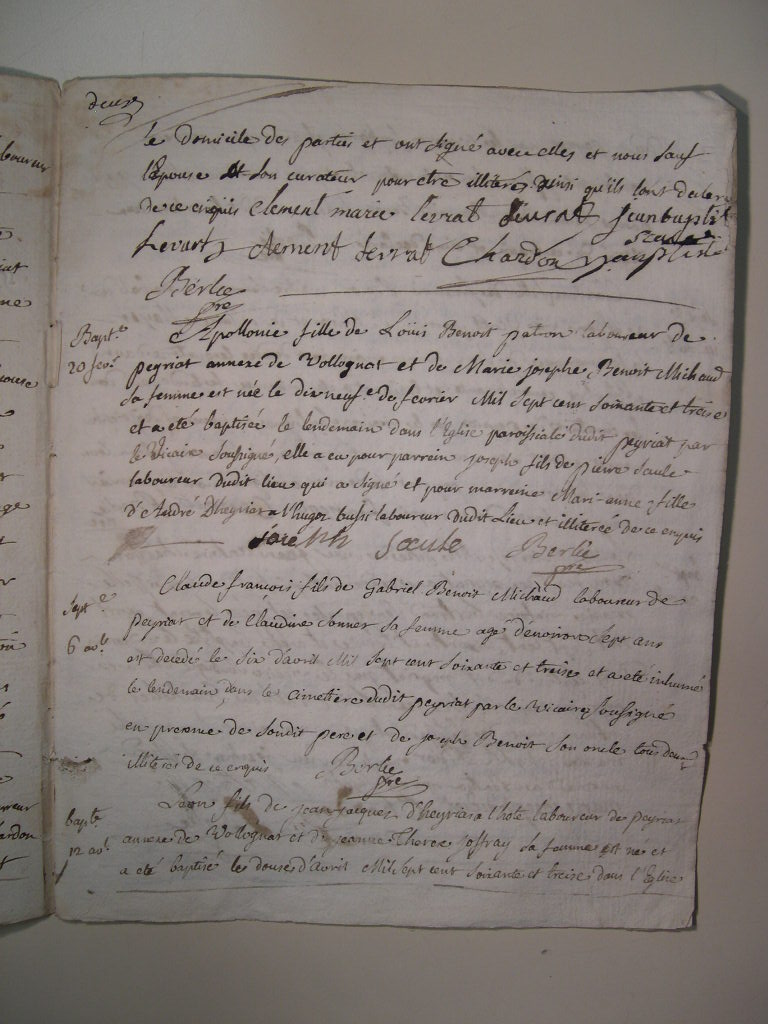 deux
le domicile des parties et ont signé avec elles et nous sauf
l'Epouse et son curateur pour être illiterés ainsi qu'ils l'ont déclaré
de ce enquis Clement marie levrat jeanbaptis
Clement levrat Chardon
Berlie
pre
Bapt.e
20 fevr
Apollonie fille de Loüis Benoit patron laboureur de
peyriat annexe de Vollognat et de Marie josephe Benoit Michaud
sa femme est née le dix neuf e de fevrier Mil Sept cent soixante et treise
et a eté baptisée le lendemain dans l'Eglise paroissiale dudit peyriat par
le Vicaire soussigné, elle a eu pour parrein joseph fils de pierre Saule
laboureur dudit lieu qui a signé et pour marreine Marianne fille
d'André D'heyriat a l'hugoz aussi laboureur dudit Lieu et illiterée de ce enquis
joseph saule Berlie
pre
Sept e
6 avl
Claude françois fils de Gabriel Benoit Michaud laboureur de
peyriat et de Claudine sa femme agé d'environ sept ans
est decedé le six d'avril Mil sept cent soixante et treise et a eté inhumé
le lendemain dans le cimetiere dudit peyriat par le Vicaire soussigné
en presence de soudit pere et de joseph Benoit son oncle tous deux
illiterés de ce enquis Berlie
pre
bapt.e
12 avl
Leon fils de jean jacques d'heyriat a l'hote laboureur de peyriat
annexe de Volognat et de jeanne Therese joffray sa femme est né et
a eté baptisé le douse d'Avril Mil Sept cent soixante et treise dans l'Eglise